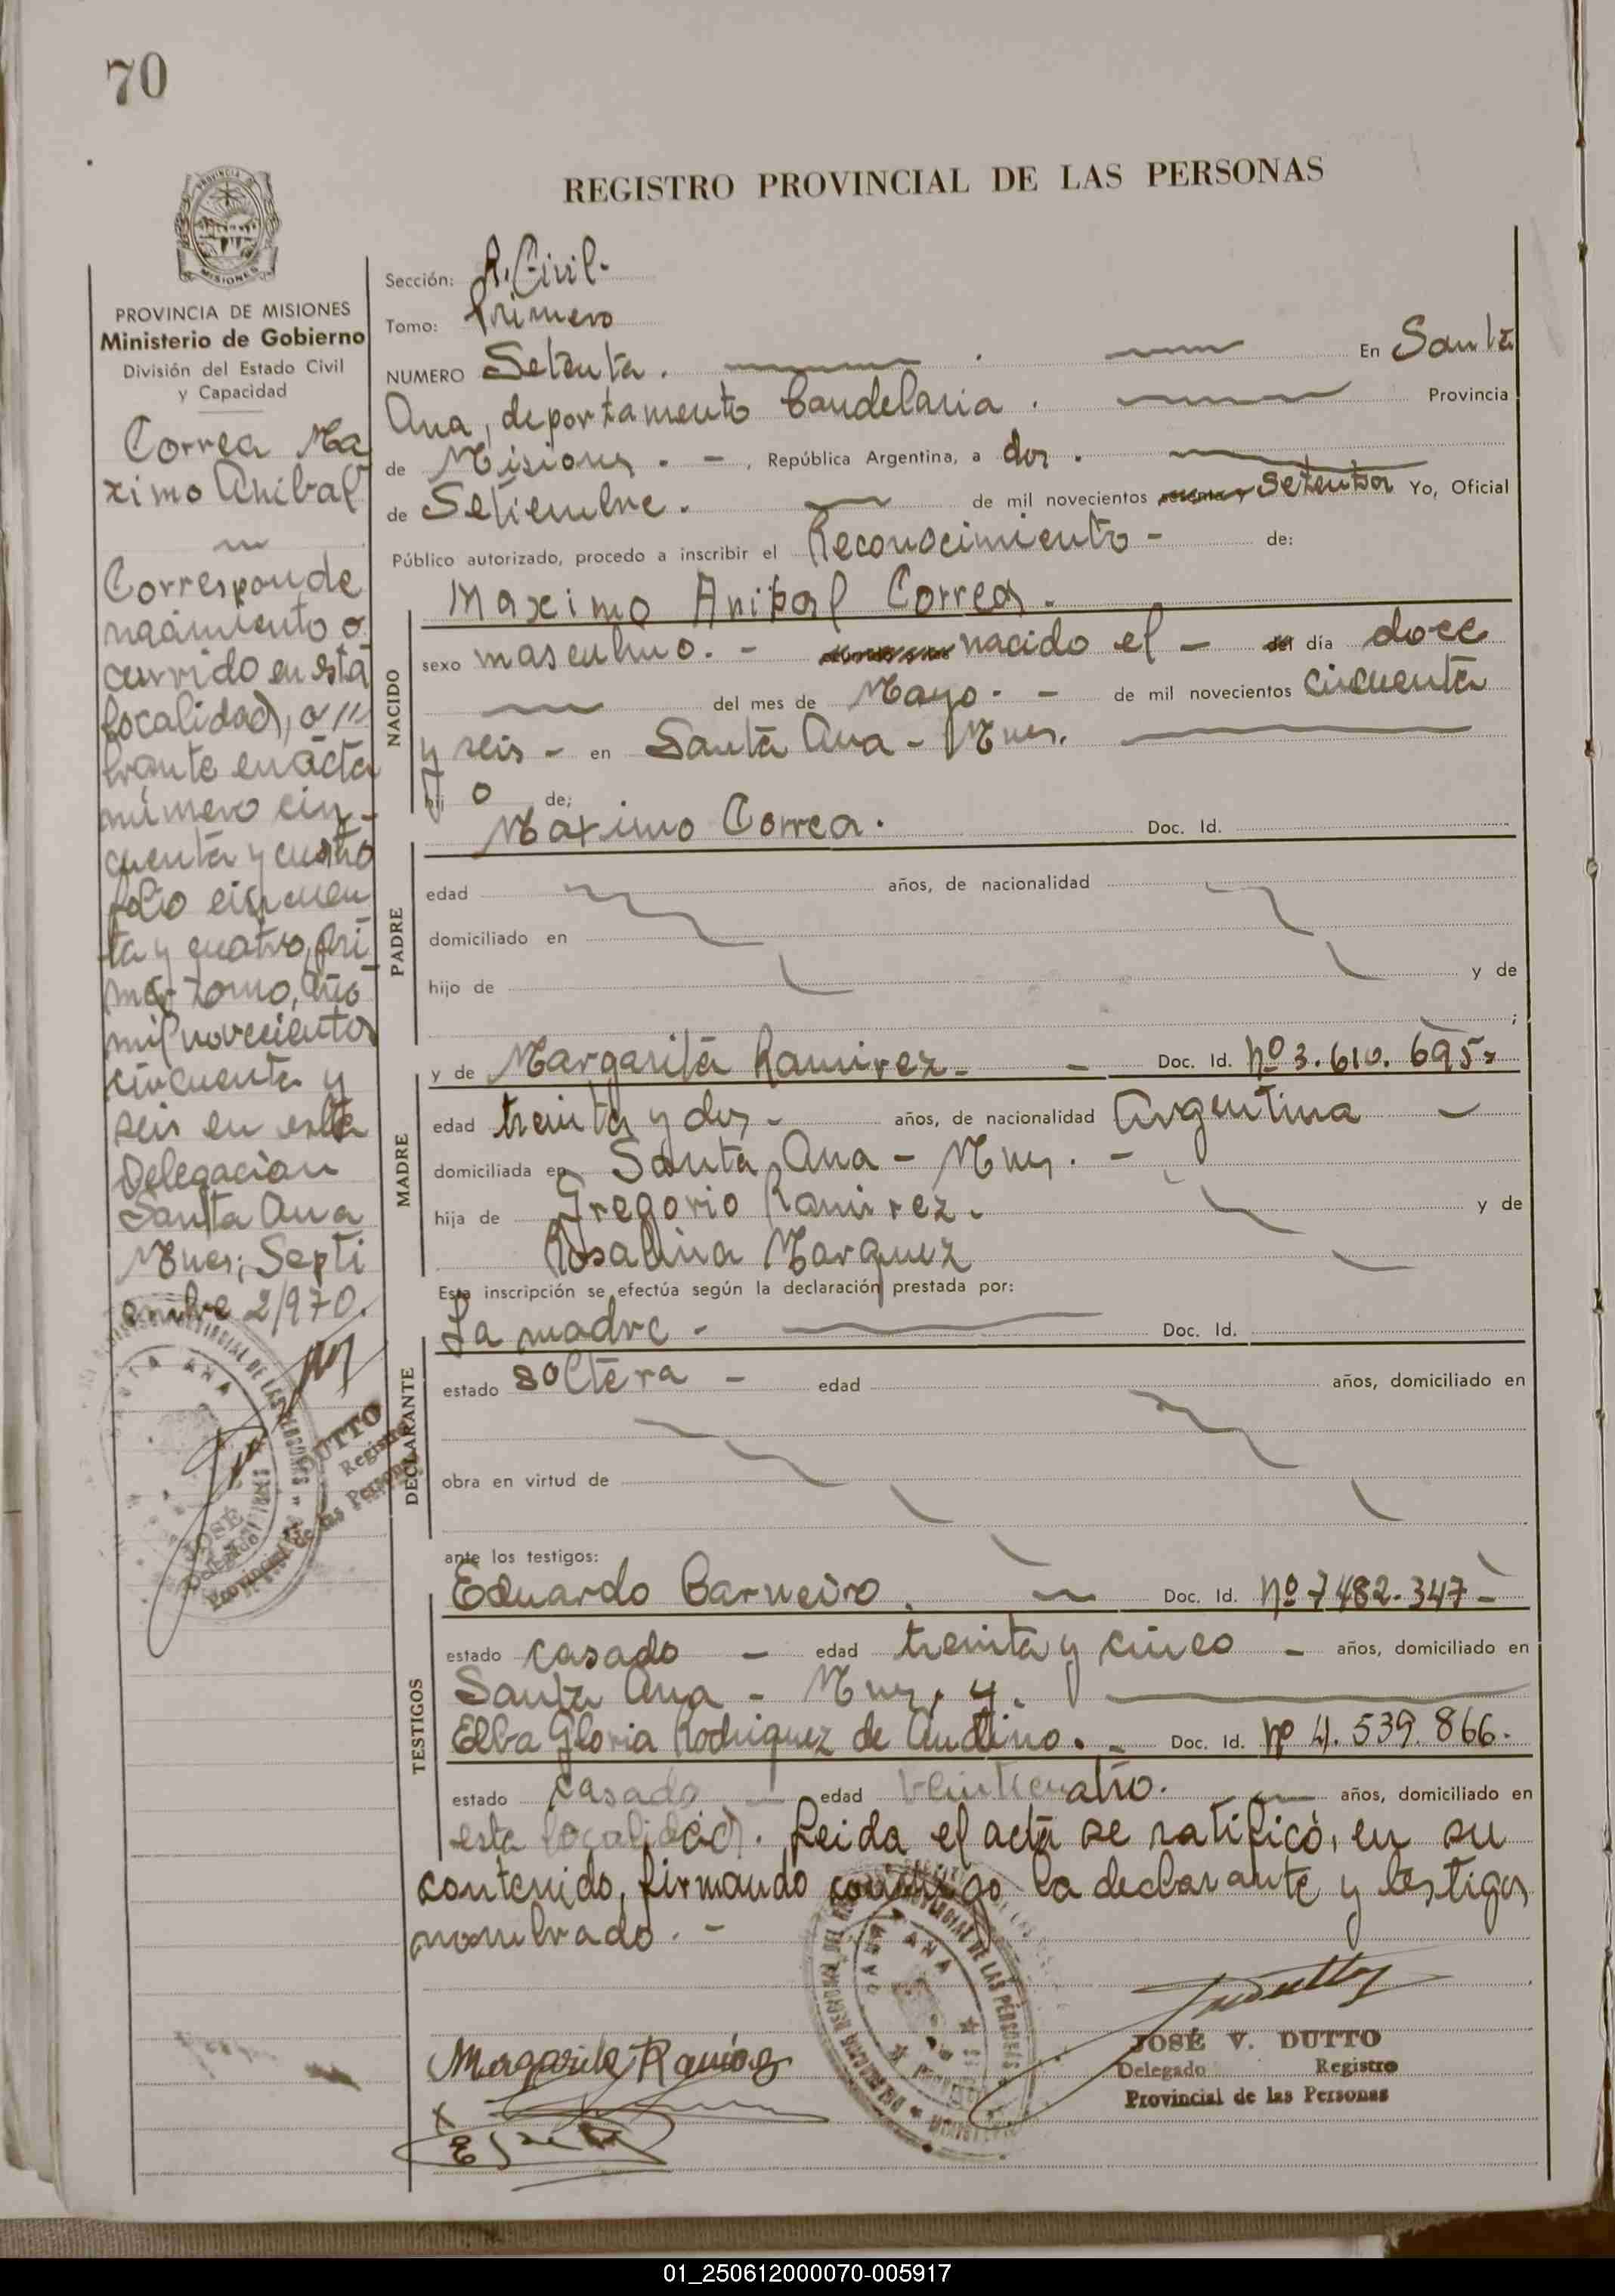 70
REGISTRO PROVINCIAL DE LAS PERSONAS
PROVINCIA DE
MISIONES
PROVINCIA DE MISIONES
Ministerio de Gobierno
División del Estado Civil
y Capacidad
Correa Ma
ximo Anibal
Corresponde
nacimiento o
currido en esta
localidad, o //
brante en acta
número cin-
cuenta y cuatro
folio cincuen
ta y cuatro, pri
mer tomo, año
mil novecientos
cincuenta y
seis en esta
Delegación
Santa Ana
Mnes; Septi
embre 2/970.
JOSÉ DUTTO
Delegado Registro
Provincial de las Personas
Sección: R. Civil.
Tomo: Primero
NUMERO Setenta. En Santa
Ana, departamento Candelaria. Provincia
de Misiones. - , República Argentina, a dos.
de Setiembre. de mil novecientos setenta Yo, Oficial
Público autorizado, procedo a inscribir el Reconocimiento - de:
Maximo Anibal Correa.
NACIDO
sexo masculino. - nacido el - del día doce
del mes de Mayo. - de mil novecientos cincuenta
y seis - en Santa Ana - Mnes.
hij o de;
Maximo Correa. Doc. Id.
PADRE
edad años, de nacionalidad
domiciliado en
hijo de y de
;
y de Margarita Ramirez - - Doc. Id. Nº 3.610.695-
MADRE
edad treinta y dos - años, de nacionalidad Argentina -
domiciliada en Santa Ana - Mnes. -
hija de Gregorio Ramirez. y de
Rosalina Marquez
Esta inscripción se efectúa según la declaración prestada por:
La madre - Doc. Id.
DECLARANTE
estado soltera - edad años, domiciliado en
obra en virtud de
ante los testigos:
Eduardo Carneiro. Doc. Id. Nº 7482.347-
TESTIGOS
estado casado - edad treinta y cinco - años, domiciliado en
Santa Ana - Mnes, y.
Elba Gloria Rodriguez de Andino. - Doc. Id. Nº 4.539.866.
estado casado - edad veinticuatro. años, domiciliado en
esta localidad. Leida el acta se ratificó, en su
contenido, firmando conmigo la declarante y testigos
nombrado. -
Margarita Ramirez
JOSÉ V. DUTTO
Delegado Registro
Provincial de las Personas
01_250612000070-005917